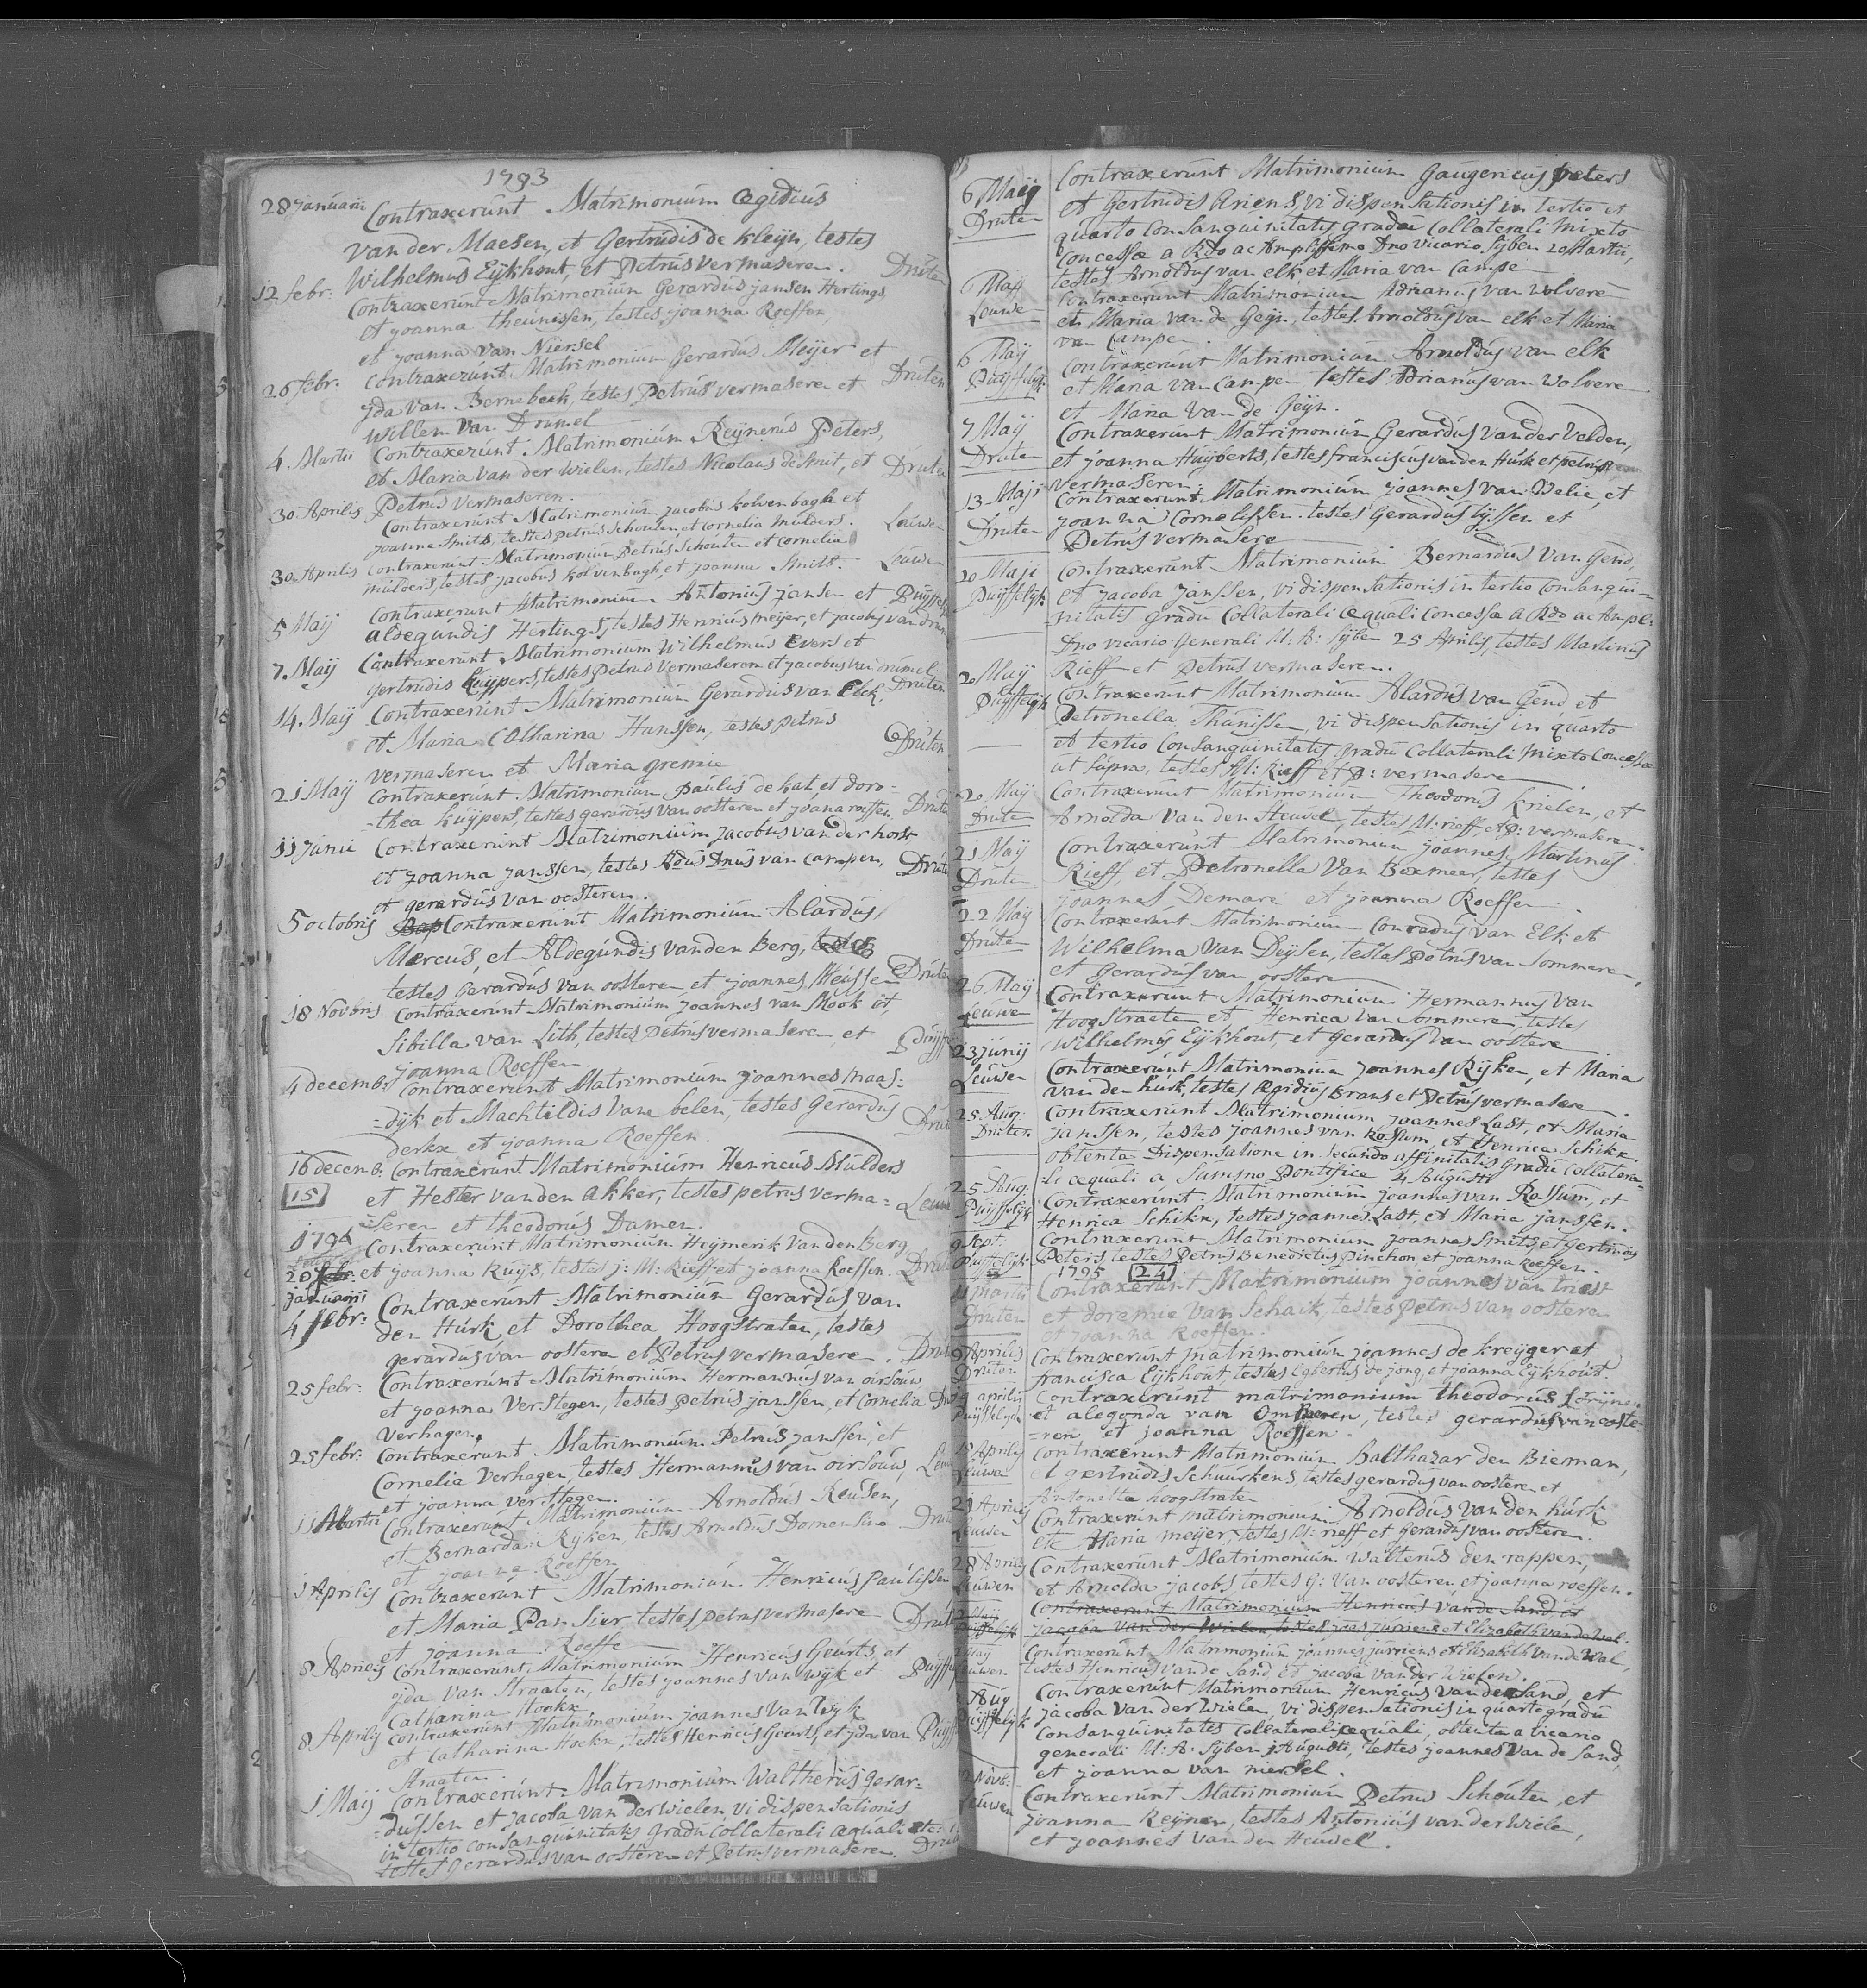 1793
28 Januarii Contraxerunt Matrimonium Ægidius
van der Maesen, et Gertrudis de Kleijn, testes
Wilhelmus Eijkhout, et Petrus vermaseren. Druten
12 febr: Contraxerunt Matrimonium Gerardus jansen Hertings
et joanna theunissen, testes joanna Roeffen
et joanna van Niersel
26 febr. Contraxerunt Matrimonium Gerardus Meijer et Druten
Yda van Bernebeek, testes Petrus vermaseren et
Willem van Drumel
4 Martii Contraxerunt Matrimonium Reijnerus Peters,
et Maria van der wielen, testes Nicolaus de Smit, et Druten
Petrus vermaseren.
30 Aprilis Contraxerunt Matrimonium jacobus kolvenbagh et
joanna Smits, testes petrus Schouten, et Cornelia mulders. Leuwen
30 Aprilis Contraxerunt Matrimonium Petrus Schouten et Cornelia
mulders, testes jacobus kolvenbagh, et joanna Smits. Leuwen
5 Maij Contraxerunt Matrimonium Antonius jansen et Puijffelijk
aldegundis Hertings, testes Henricus meijer, et jacobus van drumel
7. Maij Contraxerunt Matrimonium Wilhelmus Evers et
Gertrudis kuijpers, testes Petrus Vermaseren et jacobus van drumel
14. Maij Contraxerunt Matrimonium Gerardus van Elck, Druten
et Maria Catharina Hanssen, testes petrus
vermaseren et Maria gremie Druten
21 Maij Contraxerunt Matrimonium paulus de hat, et doro=
=thea kuijpers, testes gerardus van oosteren et joanna roeffen, Druten
11 junii Contraxerunt Matrimonium jacobus van der horst
et joanna janssen, testes Rdus Dnus van campen, Druten
et gerardus van oosteren.
5 octobris Bap Contraxerunt Matrimonium Alardus
Marcus, et Aldegundis vanden Berg, testes
testes Gerardus van oosteren et joannes Meussen Druten
18 Novbris Contraxerunt Matrimonium joannes van Mook et,
Sibilla van Lith, testes Petrus vermasere, et
joanna Roeffen
4 decemb: Contraxerunt Matrimonium joannes maas=
=dijk et Machtildis Vane belen, testes Gerardus
derkx et joanna Roeffen. Druten
16 decemb: Contraxerunt Matrimonium Henricus Mulders
15 et Hester vanden Akker, testes petrus verma= Leuwen
=seren et theodorus Damen.
1794 Contraxerunt Matrimonium Heijmerik van den Berg
20 febr. et joanna kuijs, testes j: M: Rieff et joanna Roeffen. Druten
januarii
4 febr: Contraxerunt Matrimonium Gerardus van
den Hurk et Dorothea Hoogstraten, testes
gerardus van oostere et Petrus vermasere. Druten
25 febr: Contraxerunt Matrimonium Hermannus van oirsouw
et joanna Verstegen, testes petrus janssen, et Cornelia
Verhagen.
25 febr: Contraxerunt Matrimonium Petrus janssen, et
Cornelia Verhagen, testes Hermannus van oirsouw, Leuwen
et joanna verstegen.
11 Martii Contraxerunt Matrimonium Arnoldus Reusen,
et Bernarda Rijken, testes Arnoldus Domensino Druten
et joanna Roeffen
1 Aprilis Contraxerunt Matrimonium Henricus Paulissen
et Maria Pansier testes petrus vermasere Druten
et joanna Roeffe
8 Aprilis Contraxerunt Matrimonium Henricus Geurts, et
Yda van Straaten, testes joannes van wijk et Puijffelijk
Catharina Hoekx
8 Aprilis Contraxerunt Matrimonium joannes van Wijk
et Catharina Hoekx, testes Henricus Geurts, et yda van
Straaten.
1 Maij Contraxerunt Matrimonium Waltherus gerar=
=dussen et jacoba van der wielen vi dispensationis
in tertio consanguinitatis gradu collaterali æquali
testes gerardus van oosteren et Petrus vermaseren. Druten
6 Maij Contraxerunt Matrimonium Gaugericus peters
Druten et Gertrudis Ariens, vi dispensationis in tertio et
quarto Consanguinitatis gradu Collaterali Mixto
concessæ a Rdo ac Amplissimo Dno vicario Sijben 20 Martii,
testes Arnoldus van elk et Maria van Campe
6 Maij Contraxerunt Matrimonium Adrianus van Wolvere
Leuwe et Maria van de Geijn, testes Arnoldus van elk et Maria
van Campen.
6 Maij Contraxerunt Matrimonium Arnoldus van elk
Puijffelijk et Maria van Campen testes Adrianus van Wolvere
et Maria Van de Geijn.
7 Maij Contraxerunt Matrimonium Gerardus van der Velden,
Druten et joanna Huijberts, testes franciscus van den Hurk et petrus
vermaseren.
13 Maji Contraxerunt Matrimonium joannes van Belie, et
Druten joanna Cornelissen. testes Gerardus tijssen et
Petrus vermasere
20 Maji Contraxerunt Matrimonium Bernardus van Gend,
Puijffelijk et jacoba janssen, vi dispensationis in tertio Consangui=
=nitatis gradu Collaterali æquali Concessæ a Rdo ac Ampl:
Dno vicario Generali M: A: Sijben 25 Aprilis, testes Martinus
Rieff et Petrus vermaseren.
20 Maij Contraxerunt Matrimonium Alardus van Gend, et
Puijffelijk Petronella Thunissen, vi dispensationis in quarto
et tertio Consanguinitatis gradu Collaterali Mixto Concessæ
ut supra, testes M: Rieff et P: vermasere
20 Maij Contraxerunt Matrimonium Theodorus Krielen, et
Druten Arnolda Van den Heuvel, testes M: rieff, et P: vermaseren.
21 Maij Contraxerunt Matrimonium joannes Martinus
Druten Rieff, et Petronella Van Boxmeer, testes
joannes Demare et joanna Roeffen.
22 Maij Contraxerunt Matrimonium Conradus van Elk et
Druten Wilhelma Van Deijlen, testes Petrus van Sommeren,
et Gerardus van oostere
26 Maij Contraxerunt Matrimonium Hermannus Van
Leuwen Hoogstraete et Henrica van Sommere, testes
Wilhelmus Eijkhout, et Gerardus Van oostere
23 junij Contraxerunt Matrimonium joannes Rijken, et Maria
Leuwen van den hurk, testes Ægidius Brans et Petrus vermasere.
25 Aug. Contraxerunt Matrimonium joannes Last, et Maria
Druten janssen, testes joannes van Rossum, et Henrica Schikx.
obtenta Dispensatione in Secundo affinitatis gradu Collatera=
li æquali a Summo Pontifice 4 Augusti
25 Aug. Contraxerunt Matrimonium joannes van Rossum, et
Puijffelijk Henrica Schikx, testes joannes Last, et Maria janssen.
9 Sept. Contraxerunt Matrimonium joannes Smits et Gertrudis
Puijffelijk Peters, testes Petrus Benedictus Pinchon et joanna Roeffen.
1795 24
Martii Contraxerunt Matrimonium joannes van triest
Druten et doremie van Schaik, testes petrus van oosteren
et joanna Roeffen.
9 Aprilis Contraxerunt matrimonium joannes de kreijger et
Druten francisca Eijkhout, testes Egbertus de jong, et joanna Eijkhout.
19 aprilis Contraxerunt matrimonium theodorus
Puijffelijk et alegonda van Ommeren, testes gerardus van ooste=
=ren et joanna Roeffen.
Aprilis Contraxerunt Matrimonium Balthazar den Bieman,
Leuwen et gertrudis Schuurkens, testes gerardus van oosteren, et
Antonetta hoogstraten
21 Aprilis Contraxerunt matrimonium Arnoldus van den hurk
Leuwen et Maria meijer, testes M: rieff et Gerardus van oosteren.
28 Aprilis Contraxerunt Matrimonium Walterus den rappen,
Leuwen et Arnolda jacobs, testes G: Van oosteren, et joanna roeffen.
Contraxerunt Matrimonium Henricus van de Sand et
jacoba van der Wielen, testes joas jurriens et Elizabeth van de Wal.
Maij Contraxerunt Matrimonium joannes jurriens et Elizabeth van de Wal,
Leuwen testes Henricus van de Sand, et jacoba van der Wielen.
Aug Contraxerunt Matrimonium Henricus van de Sand, et
Puijffelijk jacoba van der Wielen, vi dispensationis in quarto gradu
Consanguinitatis collaterali æquali, obtenta a vicario
generali M: A: Sijben 1 Augusti, testes joannes van de Sand,
et joanna van niersel.
Novb: Contraxerunt Matrimonium Petrus Schouten, et
Leuwen joanna Reijnen, testes Antonius van der Wiele,
et joannes van den Heuvel.